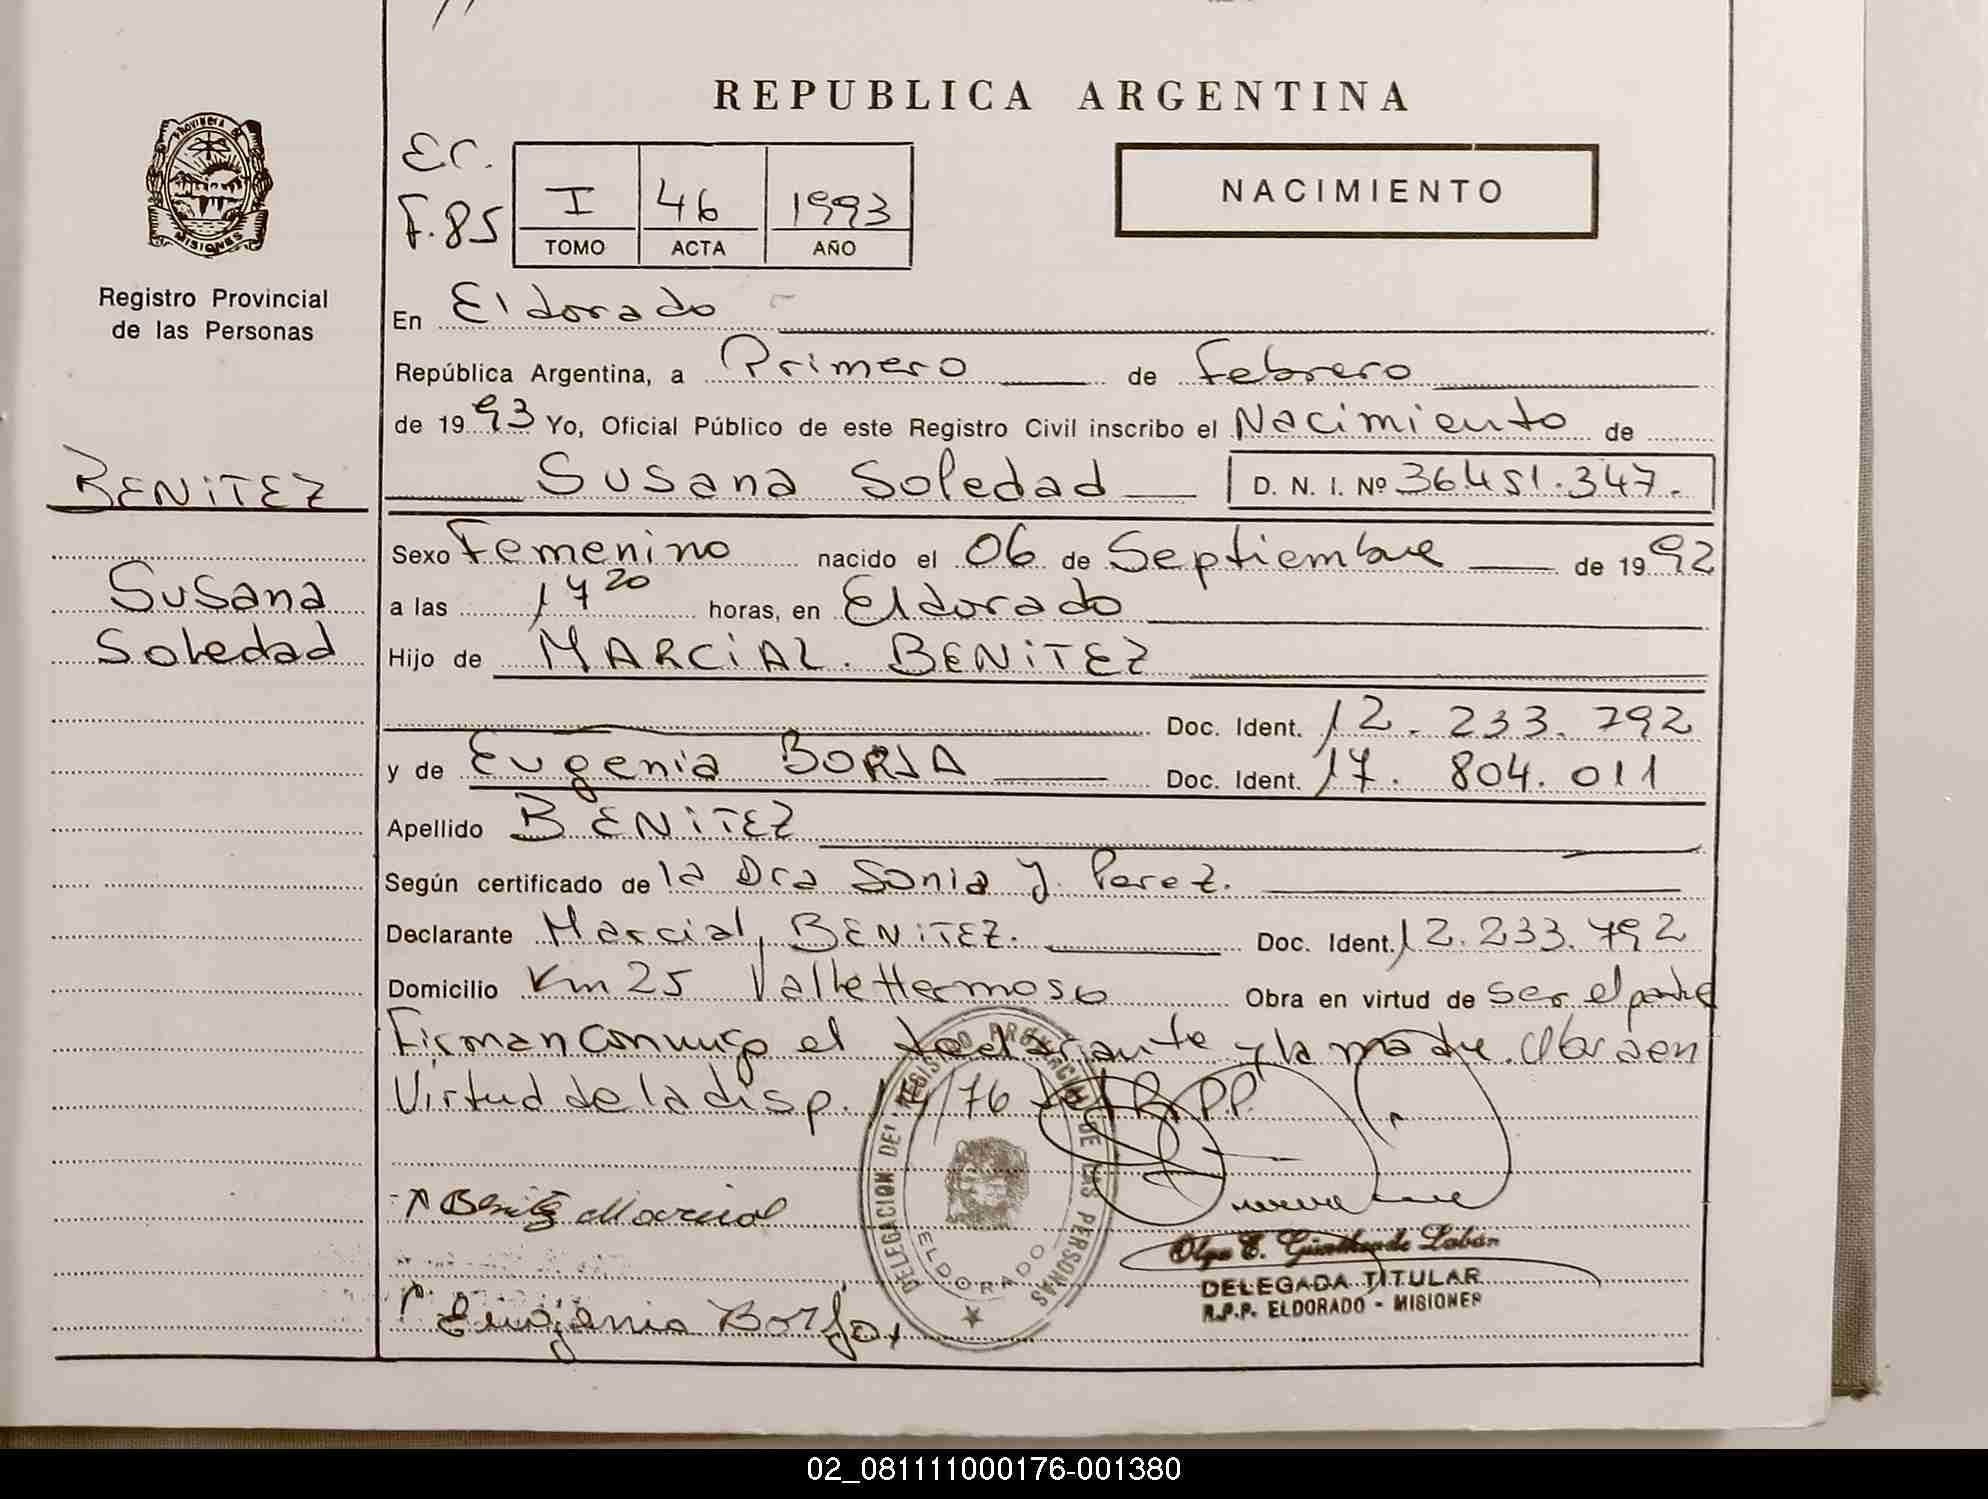 REPUBLICA ARGENTINA
PROVINCIA DE MISIONES
Registro Provincial
de las Personas
EC.
F.85
I 46 1993
TOMO ACTA AÑO
NACIMIENTO
En Eldorado
República Argentina, a Primero de Febrero
de 1993 Yo, Oficial Público de este Registro Civil inscribo el Nacimiento de
BENITEZ
Susana Soledad D. N. I. Nº 36.451.347.
Sexo Femenino nacido el 06 de Septiembre de 1992
Susana
Soledad
a las 17 20 horas, en Eldorado
Hijo de MARCIAL. BENITEZ
Doc. Ident. 12. 233. 792
y de Eugenia BORJA Doc. Ident. 17. 804. 011
Apellido BENITEZ
Según certificado de la Dra Sonia J. Perez.
Declarante Marcial, BENITEZ. Doc. Ident. 12.233.792
Domicilio Km 25 Valle Hermoso Obra en virtud de ser el padre
Firman conmigo el declarante y la madre. Obra en
Virtud de la disp. /76 del R.P.P.
Benitez Marcial
Eugenia Borja
DELEGACION DEL REGISTRO PROVINCIAL DE LAS PERSONAS
ELDORADO
Olga E. de Labán
DELEGADA TITULAR
R.P.P. ELDORADO - MISIONES
02_081111000176-001380